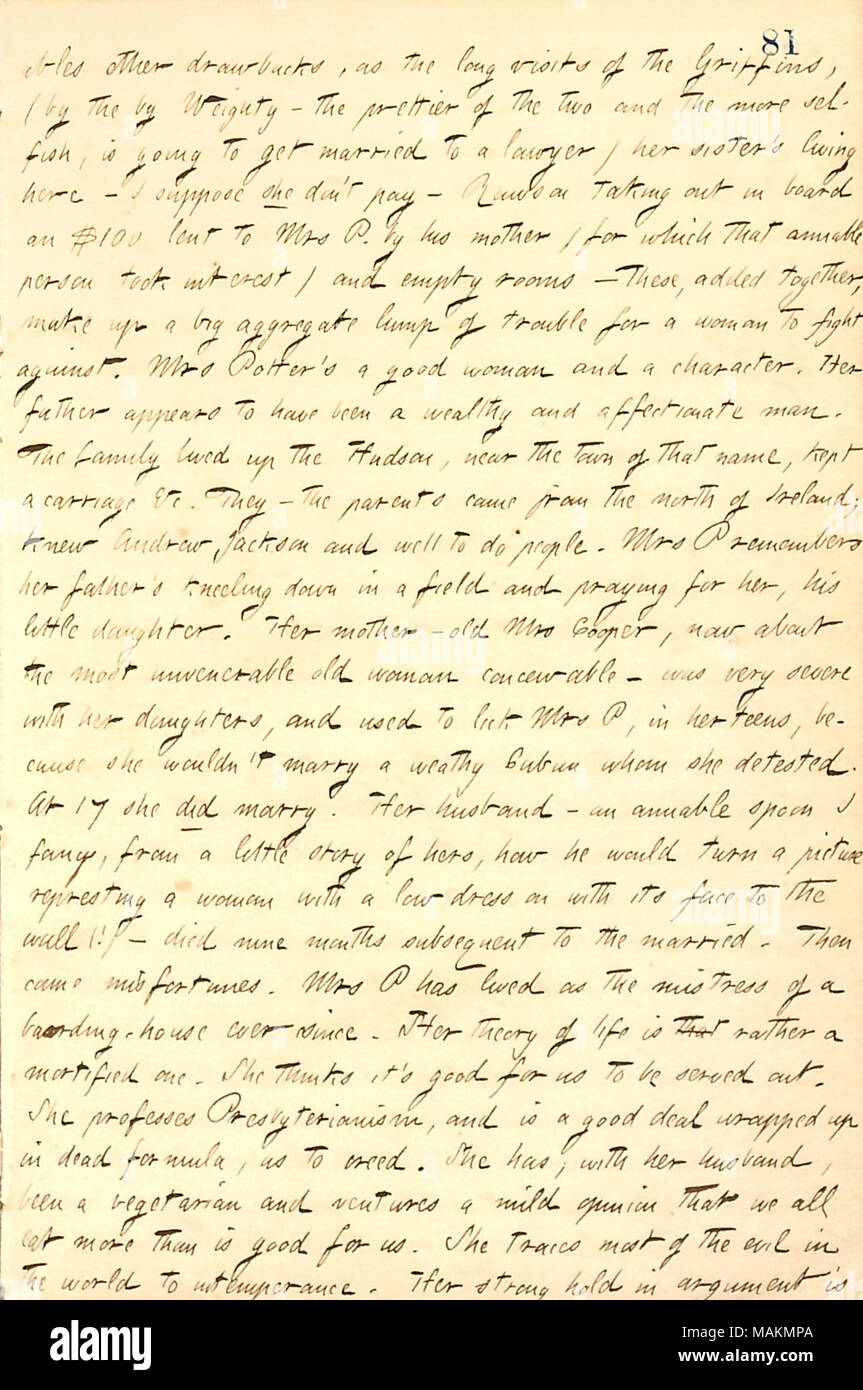 81
ables other drawbacks, as the long visits of the Griffins,
(by the by Weighty – the prettier of the two and the more sel-
fish, is going to get married to a lawyer) her sister's living
here – I suppose she don't pay – Rawson taking out in board
an $100 lent to Mrs P. by his mother (for which that amiable
person took interest) and empty rooms – these, added together,
make up a big aggregate lump of trouble for a woman to fight
against. Mrs Potter's a good woman and a character. Her
father appears to have been a wealthy and affectionate man.
The family lived up the Hudson, near the town of that name, kept
a carriage &c. They – the parents came from the north of Ireland;
knew Andrew Jackson and well to do people. Mrs P remembers
her father's kneeling down in a field and praying for her, his
little daughter. Her mother – old Mrs Cooper, now about
the most unvenerable old woman conceivable – was very severe
with her daughters, and used to lick Mrs P, in her teens, be-
cause she wouldn't marry a weathy Cuban whom she detested.
At 17 she did marry. Her husband – an amiable spoon I
fancy, from a little story of hers, how he would turn a picture
represting a woman with a low dress on with its face to the
wall (!) – died nine months subsequent to the married. Then
came misfortunes. Mrs P has lived as the mistress of a
boarding-house ever since. Her theory of life is that rather a
mortified one. She thinks it's good for us to be served out.
She professes Presbyterianism, and is a good deal wrapped up
in dead formula, as to creed. She has, with her husband,
been a vegetarian and ventures a mild opinion that we all
eat more than is good for us. She traces most of the evil in
the world to intemperance. Her strong hold in argument is
alamy
Image ID: MAKMPA
www.alamy.com